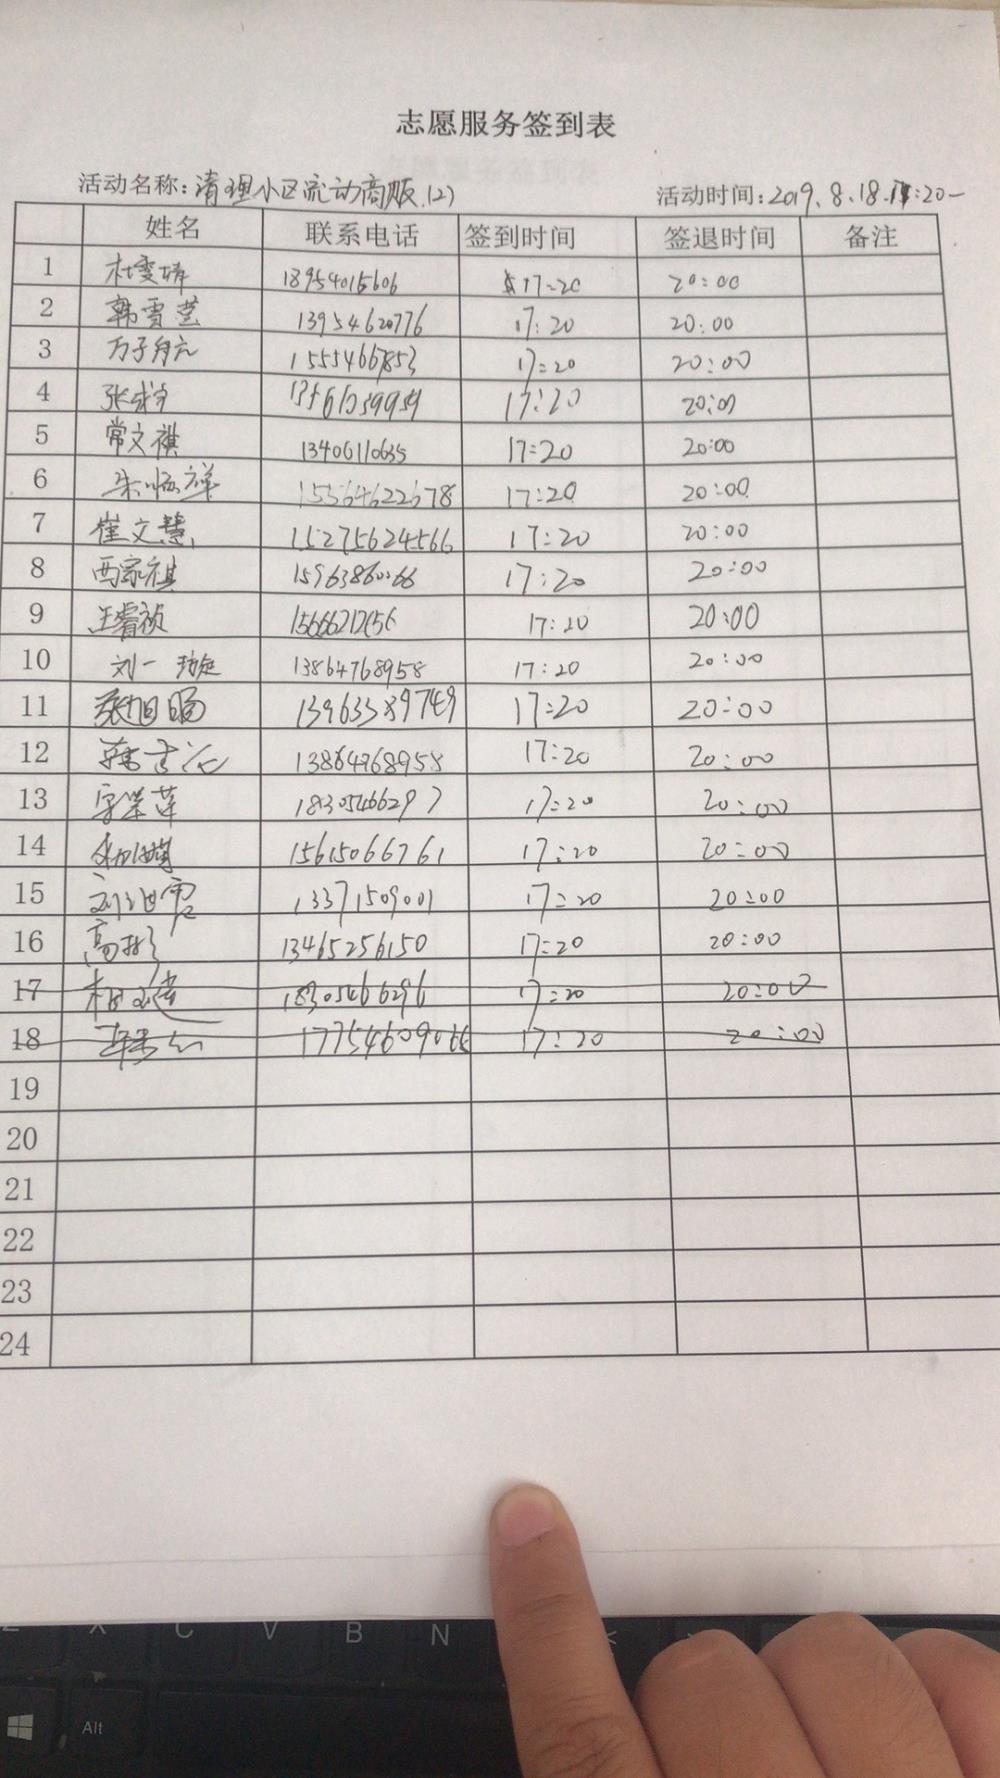 志愿服务签到表
活动名称:清理小区流动商贩(2) 活动时间:2019.8.18.17:20-
姓名 联系电话 签到时间 签退时间 备注
1 杜雯婧 18954015606 17:20 20:00
2 韩雪莹 13954620776 17:20 20:00
3 万子 15554667853 17:20 20:00
4 17:20 20:00
5 常文祺 13406110635 17:20 20:00
6 15564622678 17:20 20:00
7 崔文慧 15275624566 17:20 20:00
8 西家祺 15963860066 17:20 20:00
9 王睿祯 17:20 20:00
10 刘一 13864768958 17:20 20:00
11 张旭旸 13963589749 17:20 20:00
12 13864768958 17:20 20:00
13 18305466297 17:20 20:00
14 15615066761 17:20 20:00
15 13371509001 17:20 20:00
16 高 13465256150 17:20 20:00
17 18305466296 17:20 20:00
18 17754609066 17:20 20:00
19
20
21
22
23
24
Z X C V B N <
Alt